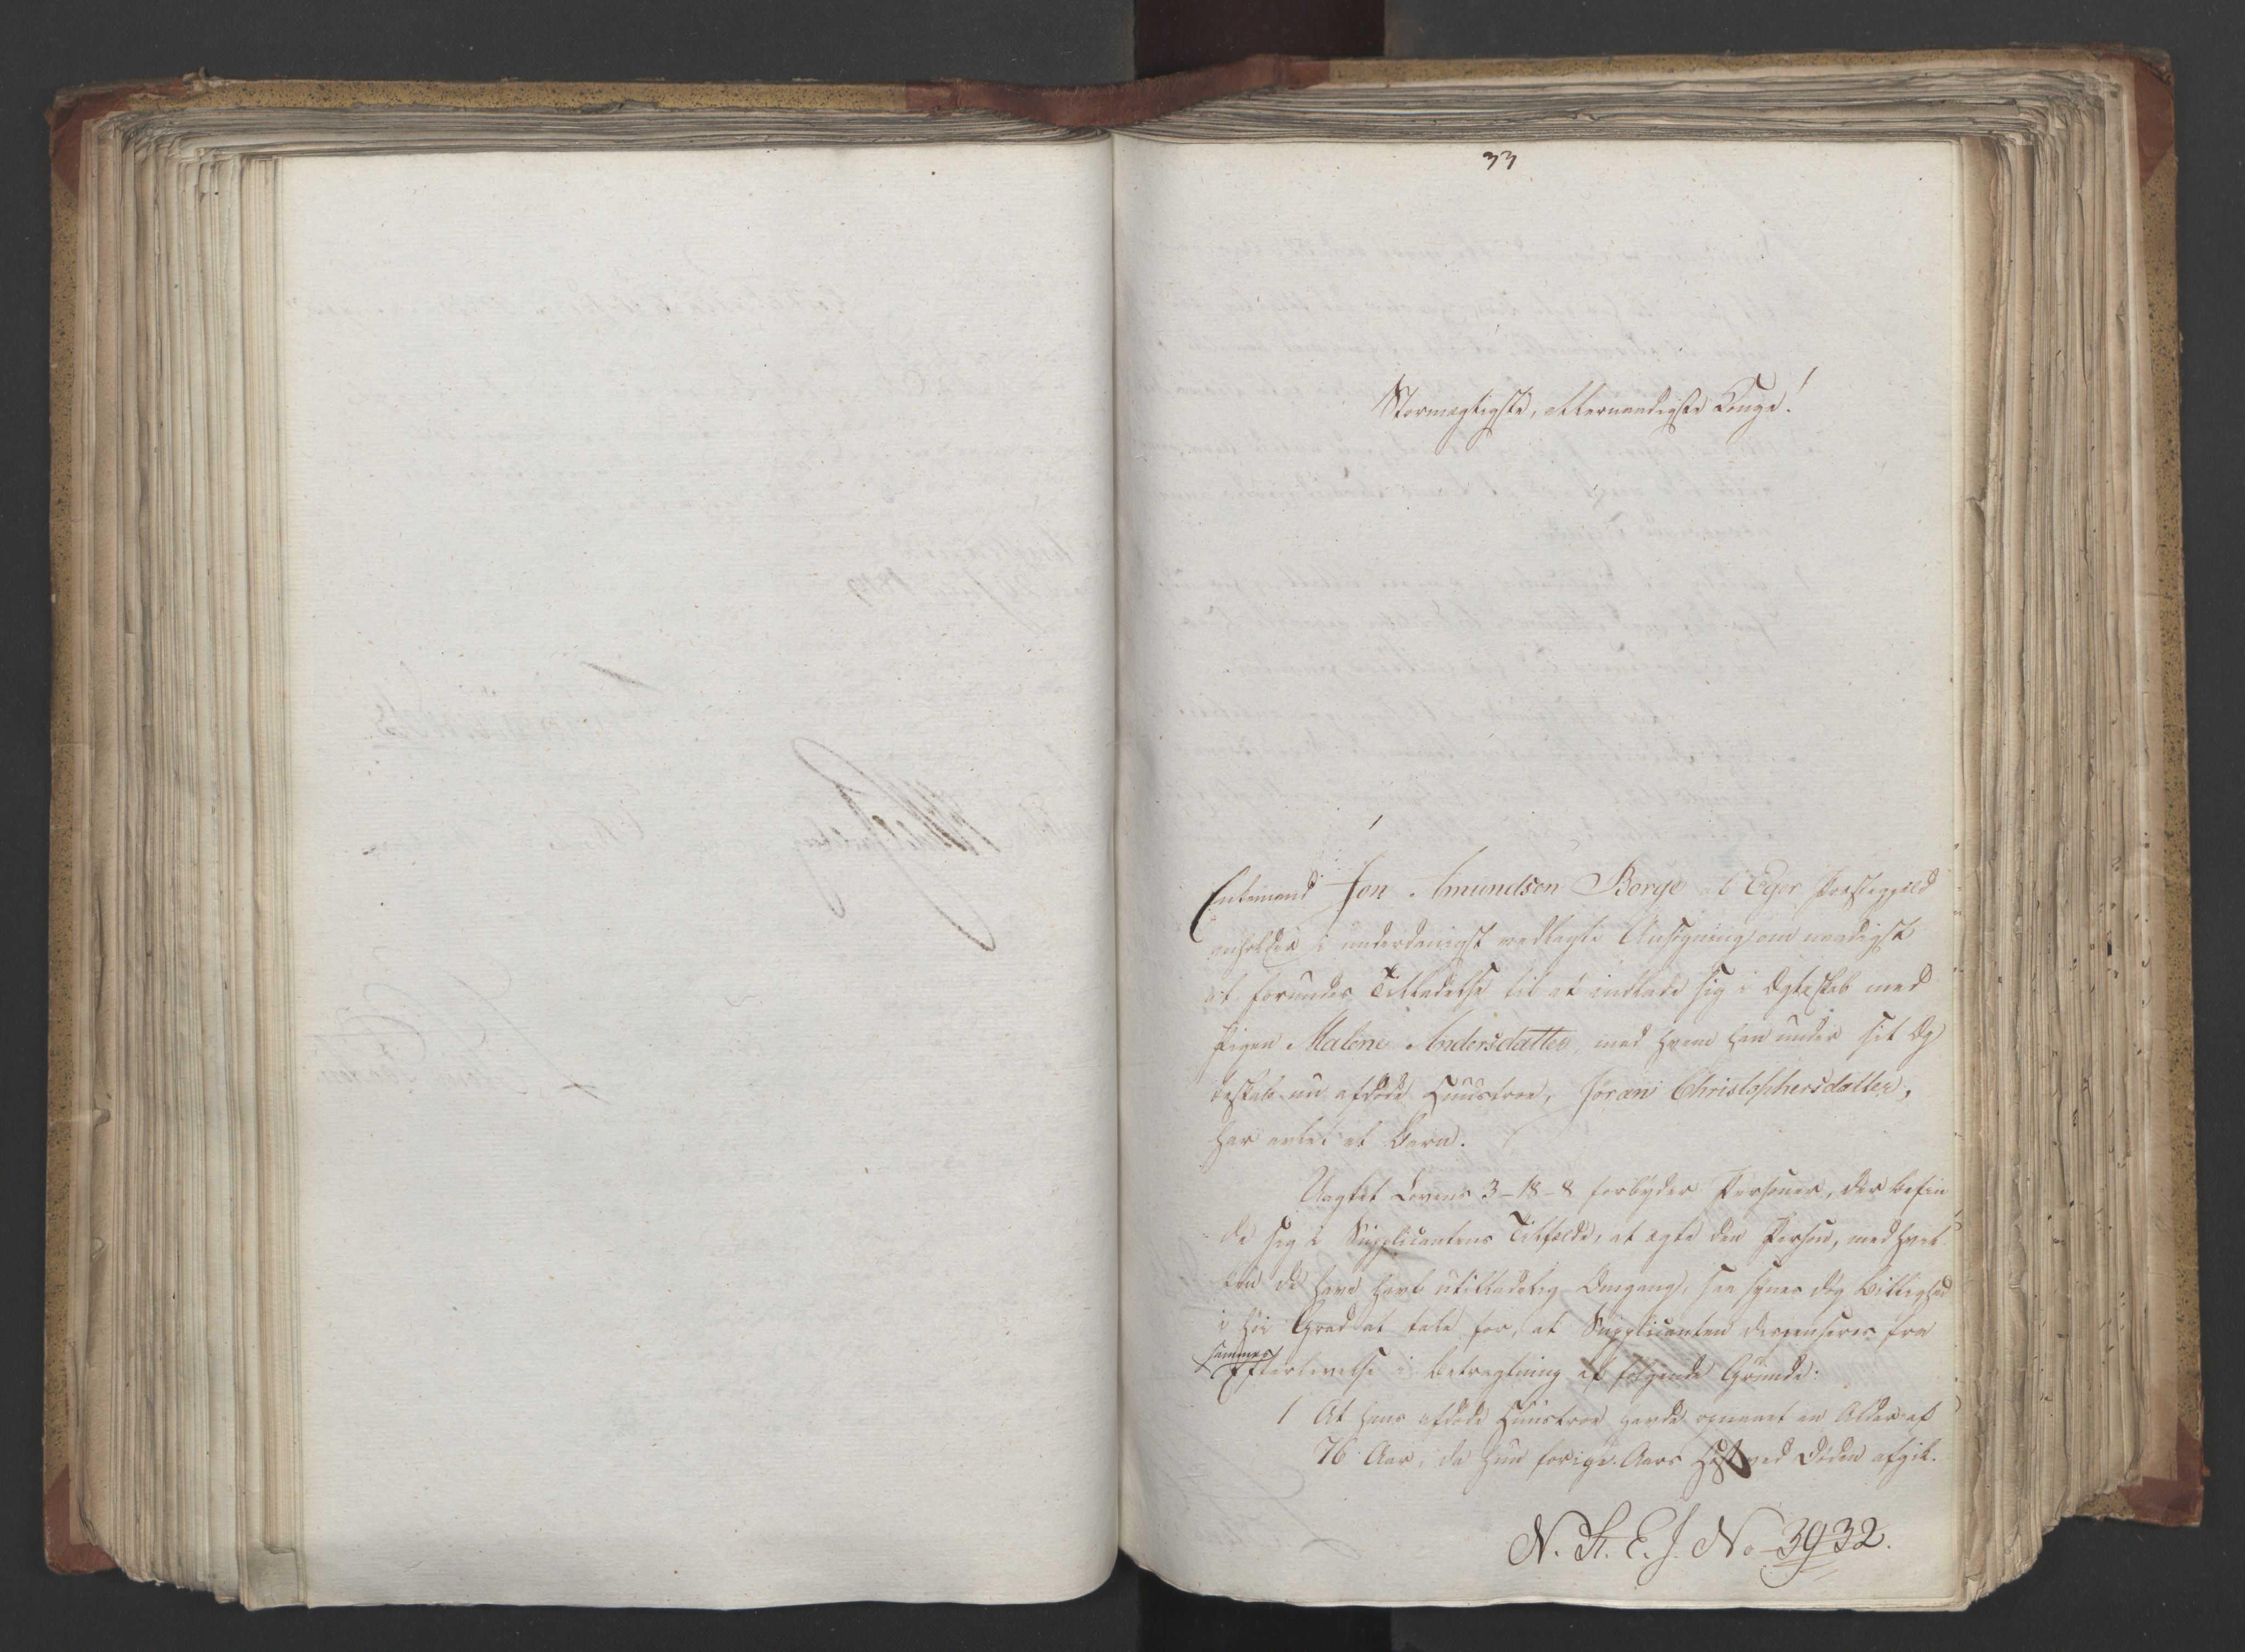 33
Stormægtigste, Allernaadigste Konge!
Enkemand Jon Amundsen Borge af Eger Præstegjeld
anholder i underdanigst vedlagte Ansøgning om naadigst
at forundes Tilladelse til at indlade sig i Ægteskab med
Pigen Malene Andersdatter, med hvem han under sit Æg
teskab nu afdøde Huustroe, Jøran Christophersdatter,
har avlet et Barn.
Uagtet Lovens 3-18-8 forbyder Personer, der befin
de sig i Supplicantens Tilfælde, at ægte den Person, med hvil
ken de have havt utilladelig Omgang, saa synes dog Billighed
i høi Grad at tale for, at Supplicanten dispenseres fra
sammes
Efterlevelse i Betragtning af følgende Grunde:
1 At hans afdøde Huustroe havde opnaaet en Alder af
76 Aar, da hun forige Aars Høst ved Døden afgik.
N. St. E. J. No 3932.